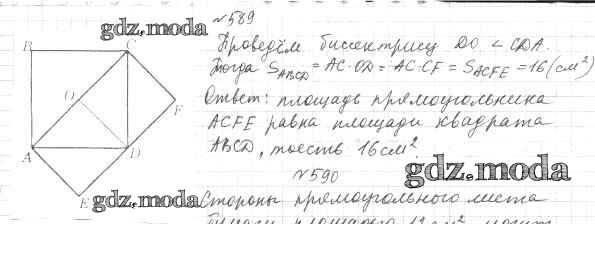 №589
gdz.moda
B C
Проведём биссектрису DO ∠ CDA.
Тогда S_ABCD = AC·OD = AC·CF = S_ACFE = 16 (см²)
O F
Ответ: площадь прямоугольника
ACFE равна площади квадрата
A D
ABCD, то есть 16 см².
gdz.moda
№590
E gdz.moda
Стороны прямоугольного листа
бумаги площадью